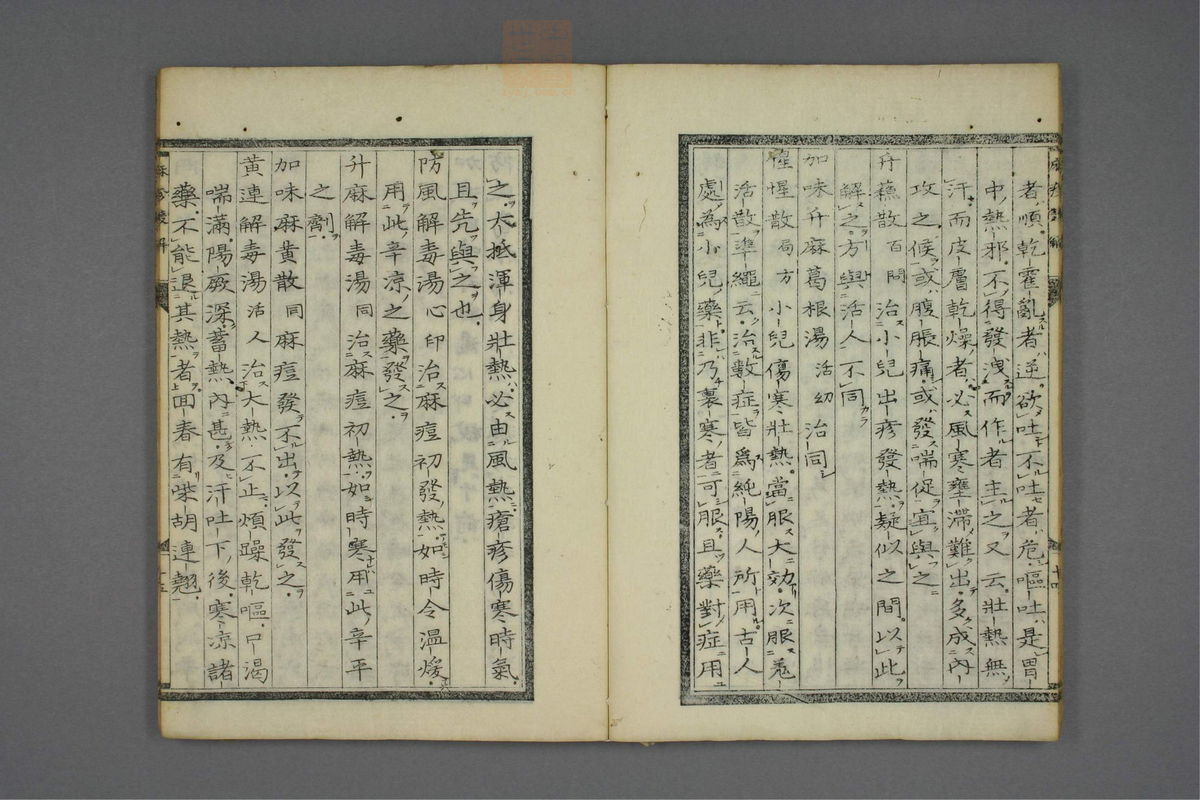 者順乾霍亂者逆欲吐不吐者危嘔吐是胃
中熱邪不得發洩而作者主之又云壯熱無
汗而皮層乾燥者必風寒壅滯難出多成內
攻之候或腹脹痛或發喘促宜與之
升蘓散百問治小兒出疹發熱疑似之間以此
解之方與活人不同
加味升麻葛根湯活幼治同
惺惺散局方小兒傷寒壯熱當服大効次服兎
活散準繩云治數症皆爲純陽人所用古人
處為小兒藥非乃裏寒者可服且藥對症用
之大抵渾身壯熱必由風熱瘡疹傷寒時氣
且先與之也
防風解毒湯心印治麻痘初發熱如時令温煖
用此辛涼之藥發之
升麻解毒湯同治麻痘初熱如時寒用此辛平
之劑
加味麻黄散同麻痘發不出以此發之
黄連解毒湯活人治大熱不止煩躁乾嘔口渴
喘滿陽厥深蓄熱內甚及汗吐下後寒涼諸
藥不能退其熱者回春有柴胡連翹